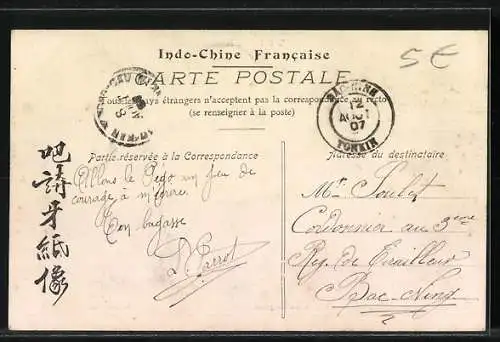 Indo-Chine Française
5€
CARTE POSTALE
Tous les pays étrangers n'acceptent pas la correspondance au recto
(se renseigner à la poste)
BAC-NINH
12
AOUT
07
TONKIN
Partie réservée à la Correspondance
Allons le Gego un peu de
courage à
Ton bagasse
D. Parrot
Adresse du destinataire
Mr. Soubet
Cordonnier au 3ème
Reg. de Tirailleur
Bac-Ninh
吧請牙紙像